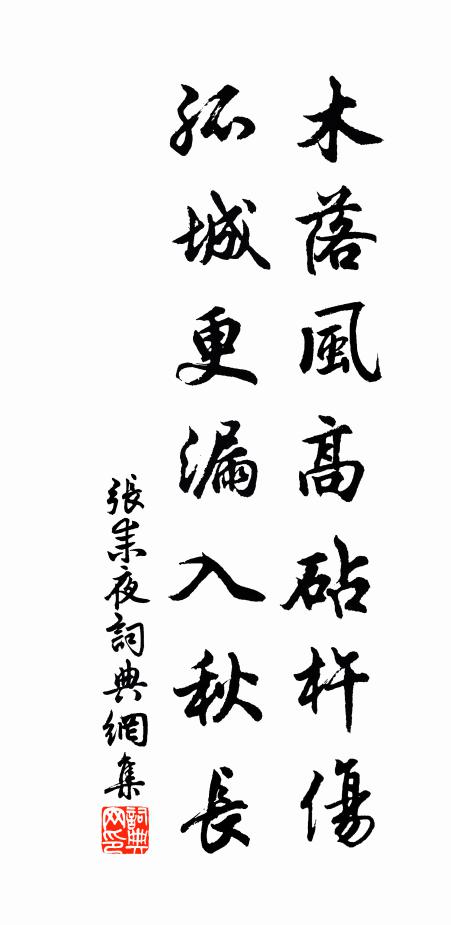 木落風高砧杵傷
孤城更漏入秋長
張耒夜詞典網集
詞典網印